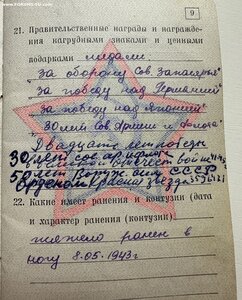 9
21. Правительственные награды и награжде-
ния нагрудными знаками и ценными
подарками медали:
„За оборону Сов. Заполярья"
„За победу над Германией"
„За победу над Японией"
„30 лет Сов. Армии и Флота"
Двадцать лет победы
в Отечест войне
50 лет Воруж. сил СССР
Орденом Красной звезды
22. Какие имеет ранения и контузии (дата
и характер ранения (контузии)
тяжело ранен в
ногу 8.05.1943 г